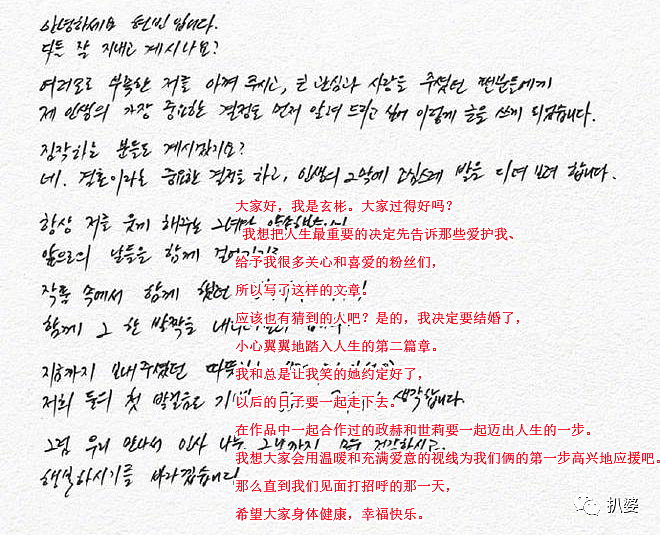 안녕하세요 현빈입니다.
다들 잘 지내고 계시나요?
여러모로 부족한 저를 아껴 주시고, 큰 관심과 사랑을 주셨던 팬분들에게
제 인생의 가장 중요한 결정을 먼저 알려 드리고 싶어 이렇게 글을 쓰게 되었습니다.
짐작하는 분들도 계시겠지요?
네. 결혼이라는 중요한 결정을 하고, 인생의 2막에 조심스레 발을 디뎌 보려 합니다.
항상 저를 웃게 해주는 그녀와
앞으로의 날들을 함께 걸어가기로
작품 속에서 함께 했던
함께 그 한 발짝을
지금까지 보내주셨던
저희 둘의 첫 발걸음도 생각합니다.
그럼 우리 만나서 인사 나눌 그날까지 모두 건강하시고
행복하시기를 바라겠습니다
大家好，我是玄彬。大家过得好吗？
我想把人生最重要的决定先告诉那些爱护我、
给予我很多关心和喜爱的粉丝们，
所以写了这样的文章。
应该也有猜到的人吧？是的，我决定要结婚了，
小心翼翼地踏入人生的第二篇章。
我和总是让我笑的她约定好了，
以后的日子要一起走下去。
在作品中一起合作过的政赫和世莉要一起迈出人生的一步。
我想大家会用温暖和充满爱意的视线为我们俩的第一步高兴地应援吧。
那么直到我们见面打招呼的那一天，
希望大家身体健康，幸福快乐。
扒婆